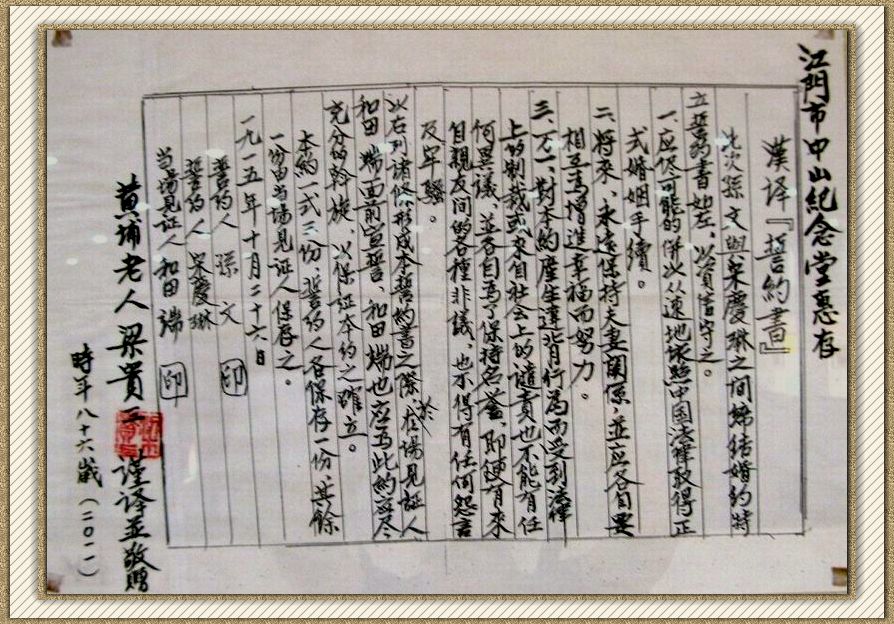 江門市中山紀念堂惠存
漢译『誓約書』
此次孫文與宋慶琳之间締结婚約特
立誓約書如左、以資信守之。
一、应侭可能的併以从速地依照中国法律取得正
式婚姻手續。
二、將來、永遠保持夫妻関係，並应各自要
相互為增進幸福而努力。
三、万一、對本約産生違背行為而受到法律
上的制裁或來自社会上的譴責也不能有任
何異議、並各自為了保持名誉、即便有來
自親友间的各種非議、也不得有任何怨言
及牢騷。
以右列諸條形成本誓約書之際、於在場見証人
和田端面前宣誓、和田端也应為此約应尽
充分的斡旋，以保证本约之確立。
本約一式三份，誓約人各保存一份、其餘
一份由当場見证人保存之。
一九一五年十月二十六日
誓約人 孫文 印
誓約人 宋慶琳
当場見证人 和田端 印
黄埔老人 梁贵 謹译並敬贈
時年八十六歲（二〇一一）